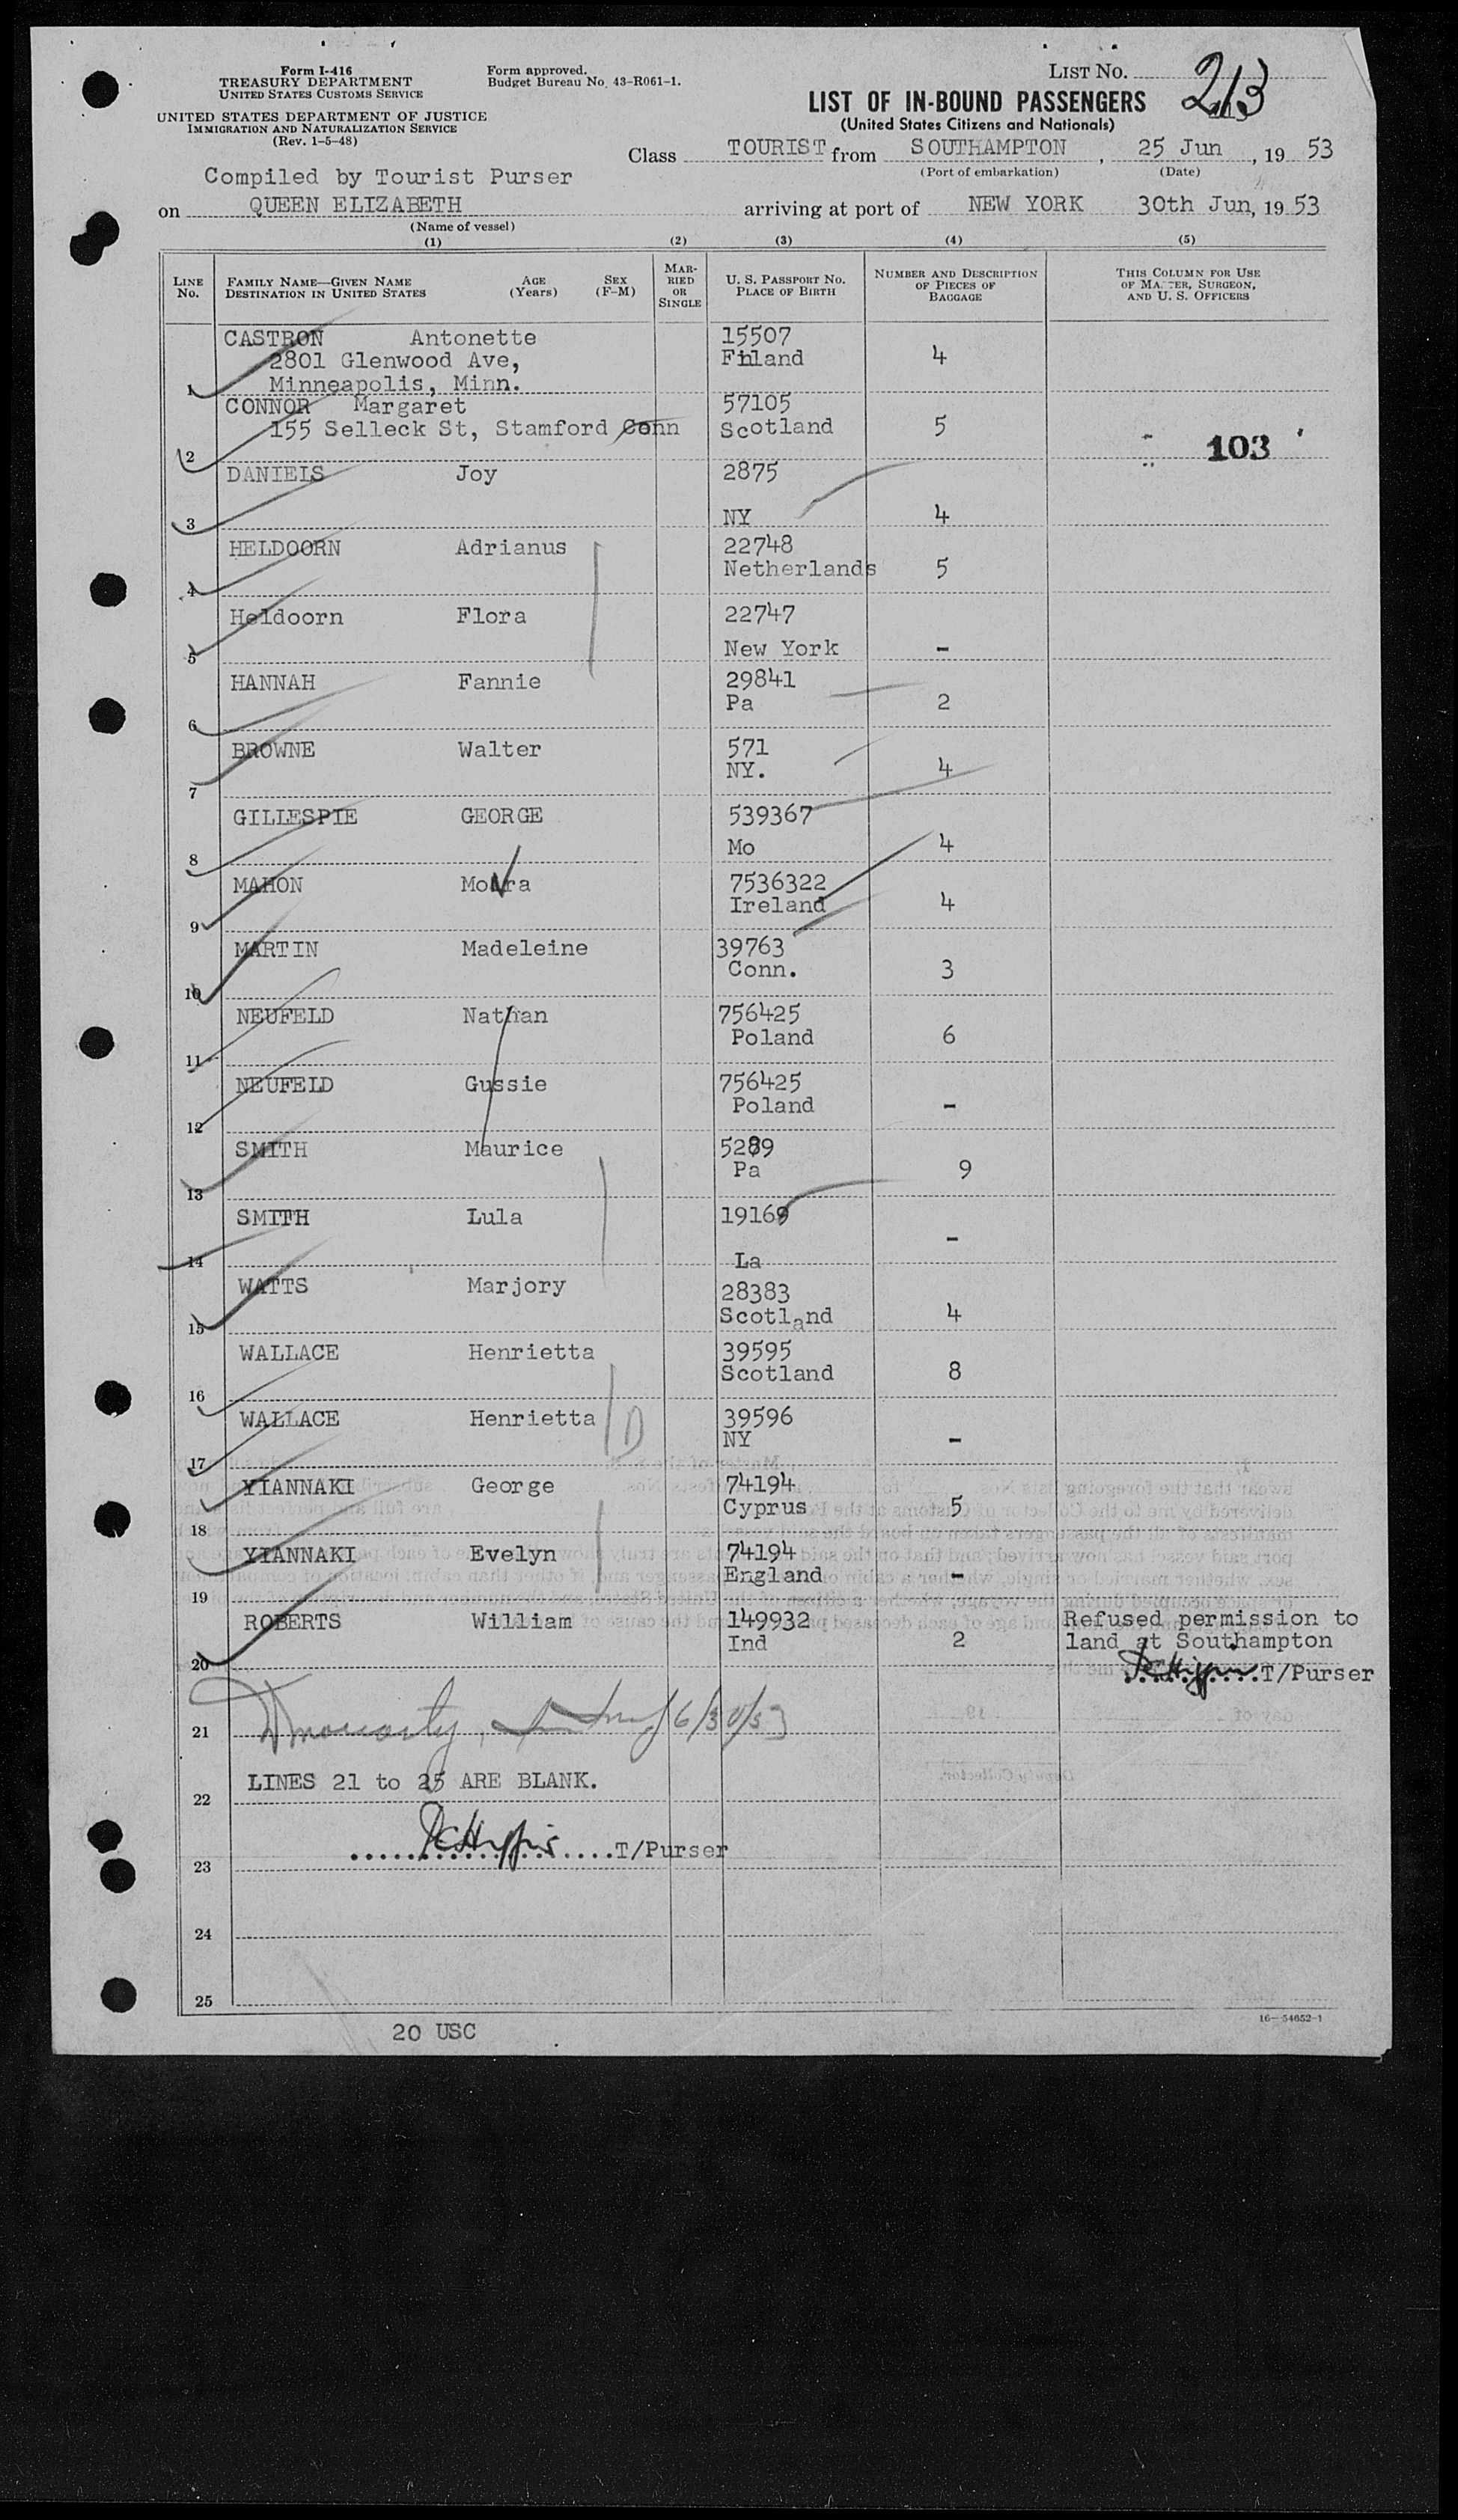 Form I-416
TREASURY DEPARTMENT
UNITED STATES CUSTOMS SERVICE
UNITED STATES DEPARTMENT OF JUSTICE
IMMIGRATION AND NATURALIZATION SERVICE
(Rev. 1-5-48)
Form approved.
Budget Bureau No. 43-R061-1.
LIST NO. 213
LIST OF IN-BOUND PASSENGERS
(United States Citizens and Nationals)
Class TOURIST from SOUTHAMPTON, 25 Jun, 19 53
(Port of embarkation) (Date)
Compiled by Tourist Purser
on QUEEN ELIZABETH arriving at port of NEW YORK 30th Jun, 19 53
(Name of vessel)
(1) (2) (3) (4) (5)
LINE No. FAMILY NAME—GIVEN NAME DESTINATION IN UNITED STATES AGE (Years) SEX (F-M) MARRIED OR SINGLE U. S. PASSPORT NO. PLACE OF BIRTH NUMBER AND DESCRIPTION OF PIECES OF BAGGAGE THIS COLUMN FOR USE OF MASTER, SURGEON, AND U. S. OFFICERS
CASTRON Antonette 15507
2801 Glenwood Ave, Finland 4
1 Minneapolis, Minn.
CONNOR Margaret 57105
155 Selleck St, Stamford Conn Scotland 5
2 103
DANIELS Joy 2875
3 NY 4
HELDOORN Adrianus 22748
4 Netherlands 5
Heldoorn Flora 22747
5 New York -
HANNAH Fannie 29841
6 Pa 2
BROWNE Walter 571
7 NY. 4
GILLESPIE GEORGE 539367
8 Mo 4
MAHON Moira 7536322
9 Ireland 4
MARTIN Madeleine 39763
10 Conn. 3
NEUFELD Nathan 756425
11 Poland 6
NEUFELD Gussie 756425
12 Poland -
SMITH Maurice 5289
13 Pa 9
SMITH Lula 19169
14 La -
WATTS Marjory 28383
15 Scotland 4
WALLACE Henrietta 39595
16 Scotland 8
WALLACE Henrietta D 39596
17 NY -
YIANNAKI George 74194
18 Cyprus 5
YIANNAKI Evelyn 74194
19 England -
ROBERTS William 149932 Refused permission to
20 Ind 2 land at Southampton
T/Purser
21 6/30/53
LINES 21 to 25 ARE BLANK.
22
23 T/Purser
24
25
16—54652-1
20 USC